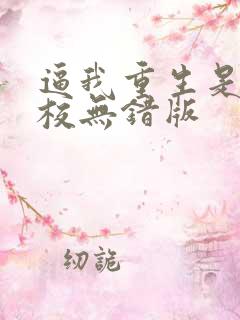 逼我重生是
校無錯版
纫詭